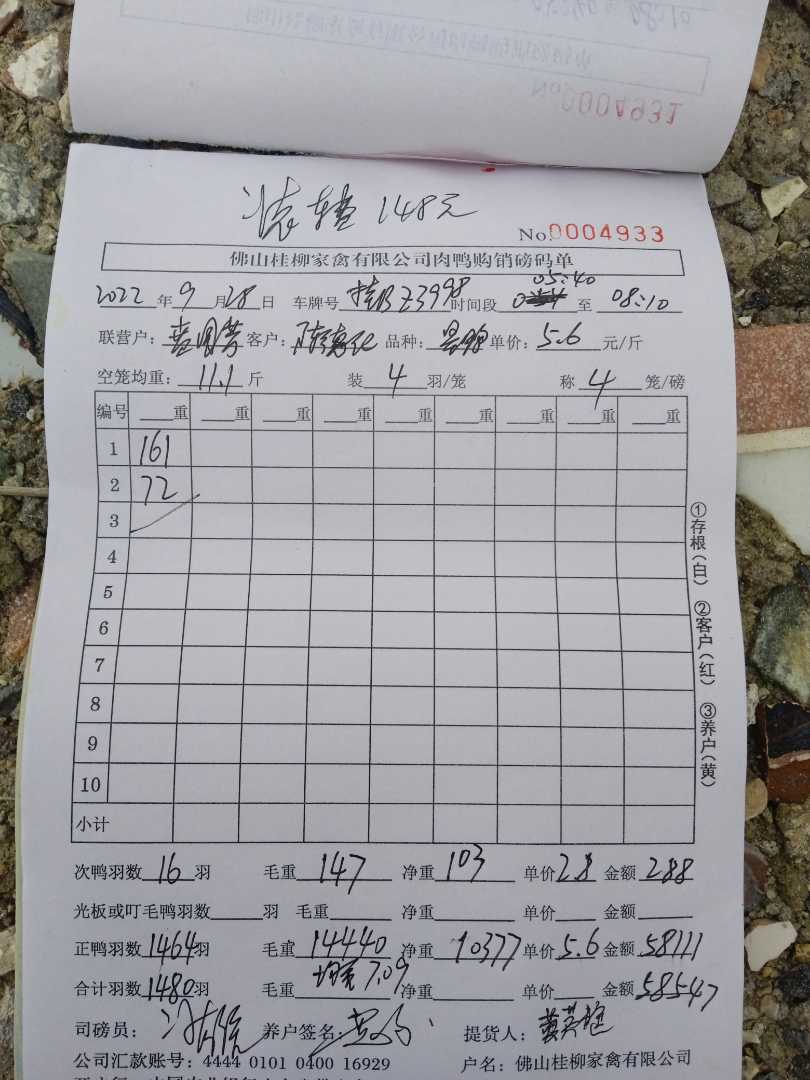 装猪 148元
No.0004933
佛山桂柳家禽有限公司肉鸭购销磅码单
2022年9月28日 车牌号 Z3998 时间段 05:40 至 08:10
联营户: 客户: 品种: 单价: 5.6 元/斤
空笼均重: 11.1 斤 装 4 羽/笼 称 4 笼/磅
编号 重 重 重 重 重 重 重 重 重
1 161
2 72
3
4
5
6
7
8
9
10
小计
①存根(白) ②客户(红) ③养户(黄)
次鸭羽数 16 羽 毛重 147 净重 103 单价 2.8 金额 288
光板或叮毛鸭羽数 羽 毛重 净重 单价 金额
正鸭羽数 1464 羽 毛重 14440 净重 10377 单价 5.6 金额 58111
均重 7.09
合计羽数 1480 羽 毛重 净重 单价 金额 58547
司磅员: 养户签名: 提货人:
公司汇款账号: 4444 0101 0400 16929 户名: 佛山桂柳家禽有限公司